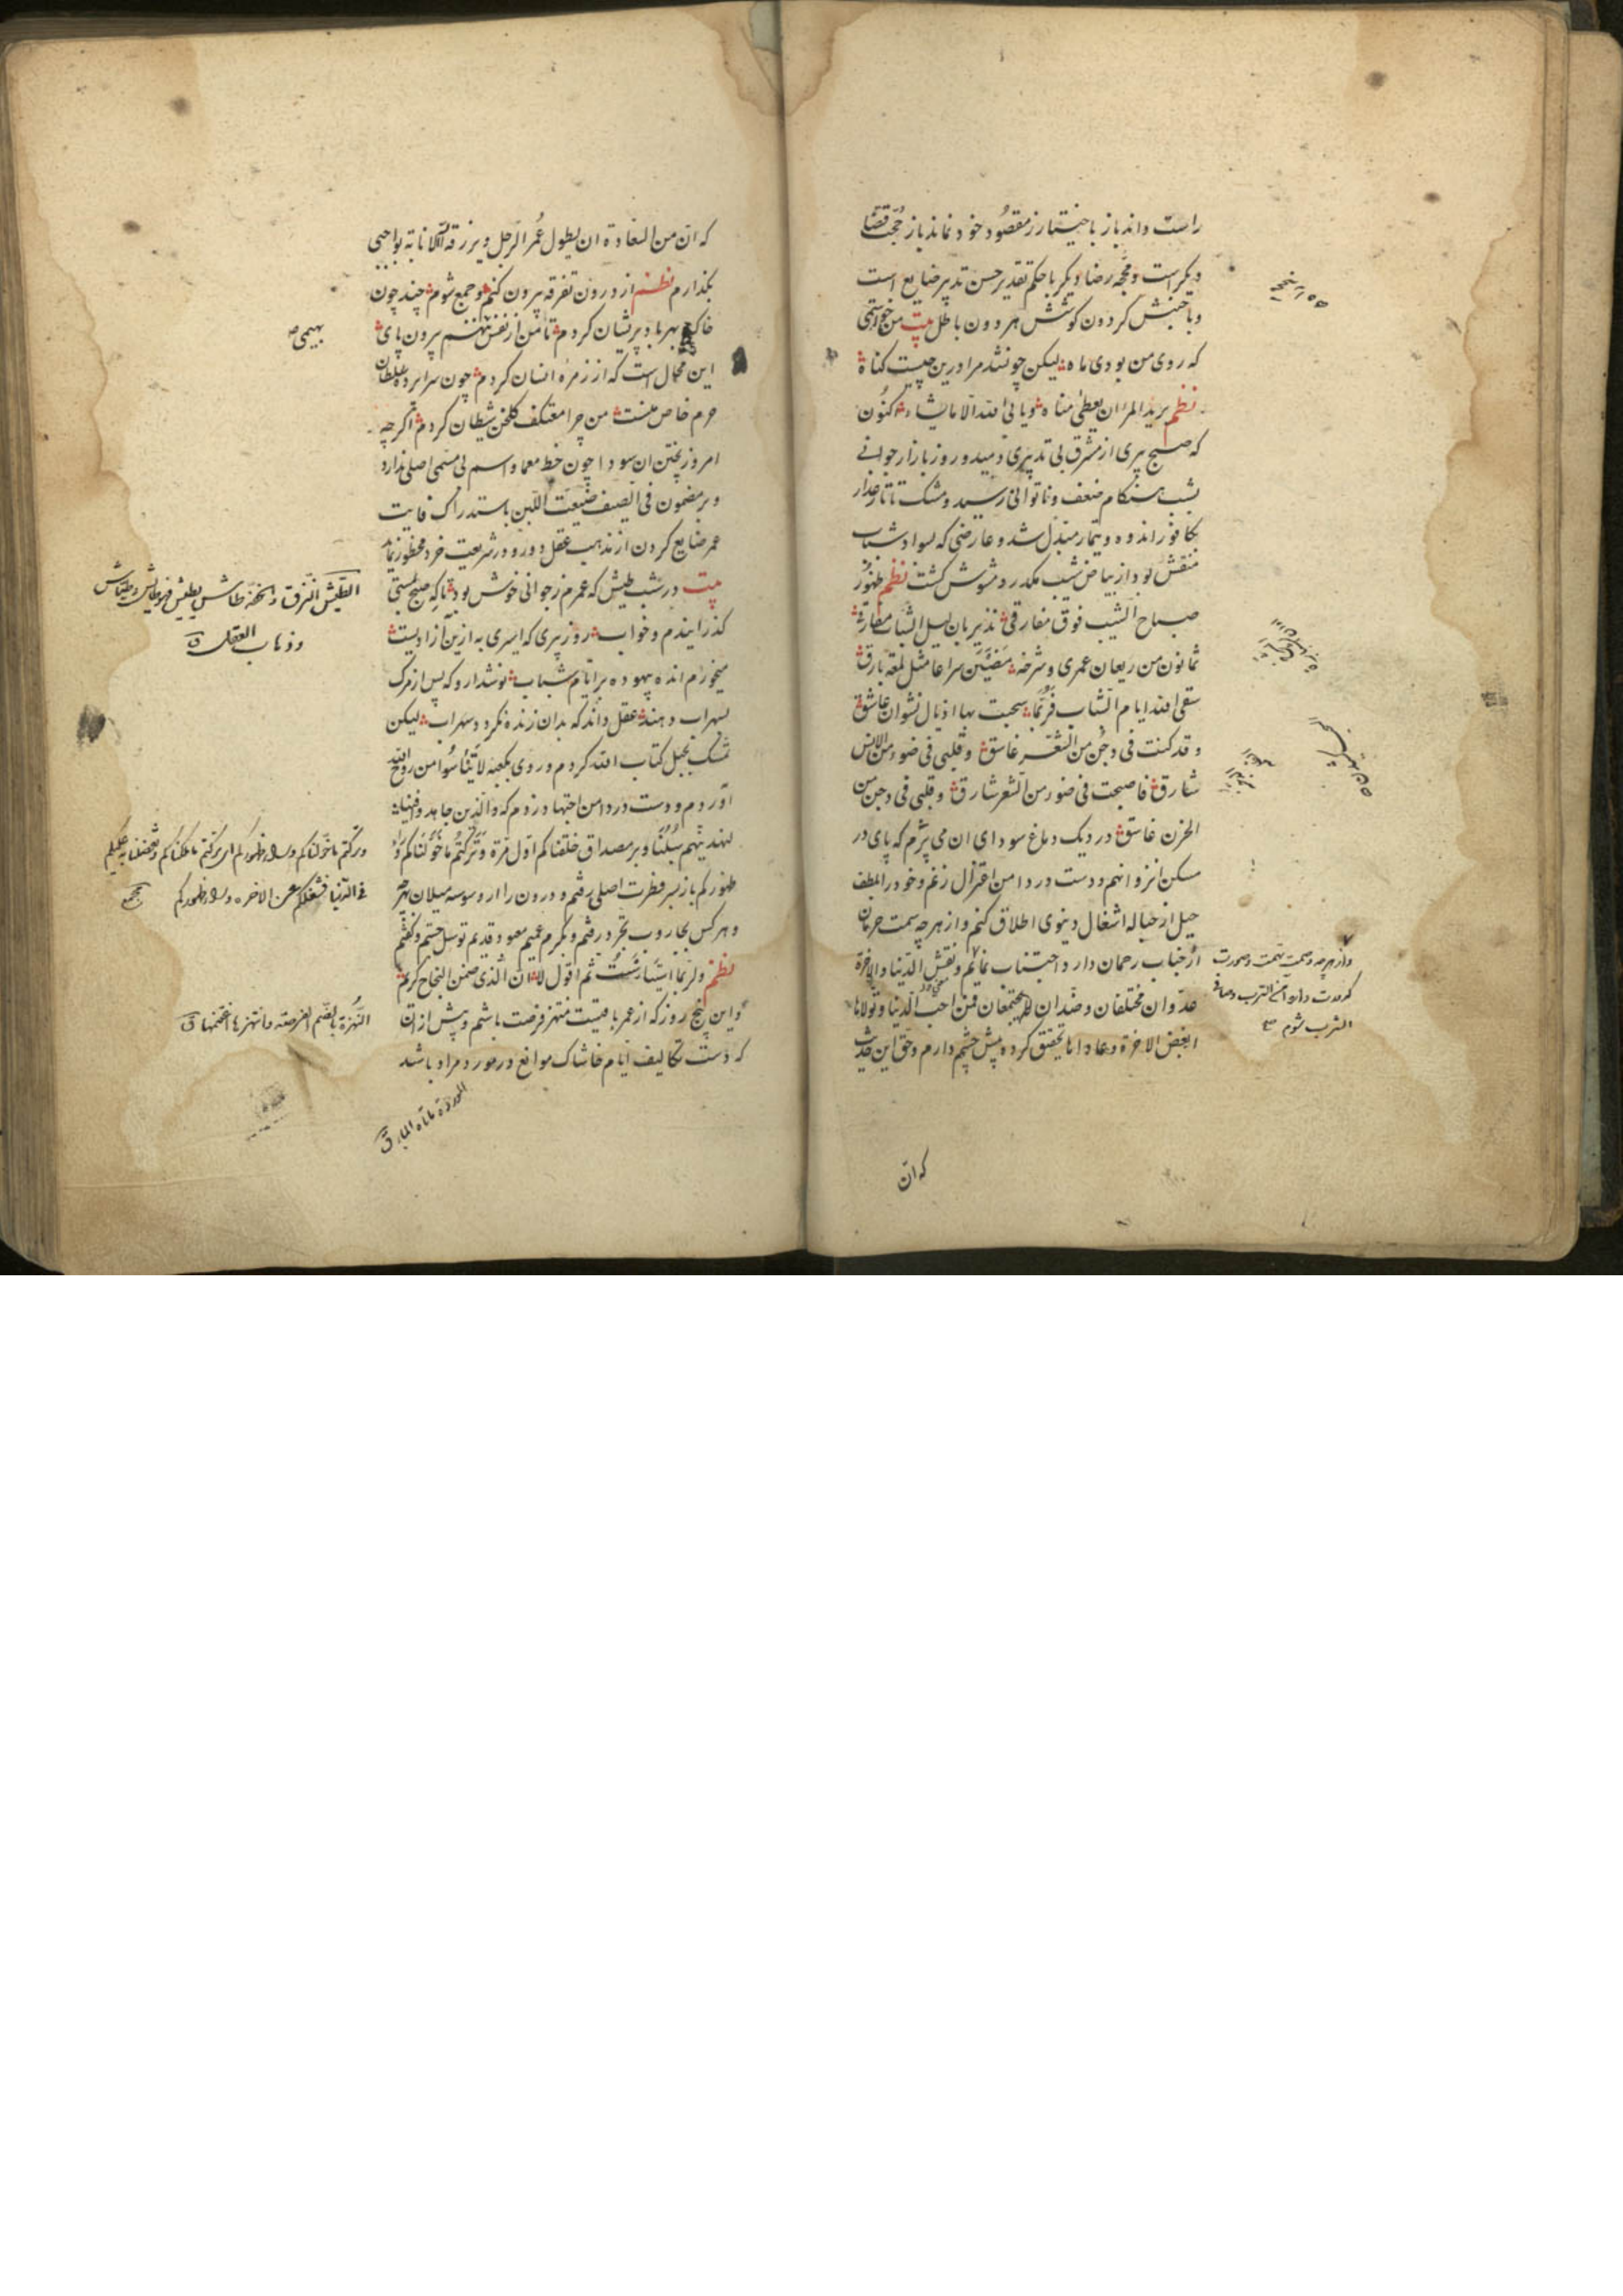 راست داند باز با خیتارز مقصود خود نماند باز حجت قضا
دیگر است و محجه رضا دیگر با حکم تقدیر حسن تدبیر ضایع است
و با جنبش گردون کوشش هر دون باطل بیت من خواستمی
که روی من بودی ماه لیکن چو نشد مرا درین چیست کناه
نظم یرید المرء ان یعطی مناه ویابی الله الا ما یشاء اکنون
که صبح پیری از مشرق بی تدبیری دمید و روز بازار جوانی
بشب هنکام ضعف و ناتوانی رسید و مشک تاتار عذار
بکافور اندوه و تیمار مبتدل شد و عارضی که بسواد شباب
منقش بود از بیاض شیب مکدر و مشوش کشت نظم ظهور
صباح الشیب فوق مفارقی نذیر بان لیل الشباب مفارق
ثمانون من ریعان عمری و شرخه مضین سراعا مثل لمعة بارق
سقی الله ایام الشباب فربما سحبت بها اذیال نشوان عاشق
و قد کنت فی دجن من الشعر غاسق و قلبی فی ضوء من الانس
شارق فاصبحت فی ضوء من الشعر شارق و قلبی فی دجن من
الحزن غاسق در دیک دماغ سودای ان می پزم که پای در
مسکن انزوا نهم و دست در دامن اعتزال زنم و خود را بلطف
حیل از حباله اشغال دنیوی اطلاق کنم و از هر چه سمت حرمان
از جناب رحمان دارد اجتناب نمایم و نقش الدنیا والاخرة
عدوان مختلفان و ضدان لا یجتمعان فمن احب الدنیا و تولاها
ابغض الاخرة و عاداها تحقیق کرده پیش چشم دارم و حق این حدیث
و از هر چه وصمت تهمت و صورت
کدورت دارد آمن الترب و صافی
الشرب شوم
که ان
که ان من السعادة ان یطول عمر الرجل ویرزقه الله الانابة بواجبی
بکذارم نظم از درون تفرقه بیرون کنم و جمع شوم چند چون
خاک بهر باد پریشان کردم تا من از نفس بهیمی ننهم بیرون پای
این محال است که از زمره انسان کردم چون سرابرده سلطان
حرم خاص منست من چرا معتکف کلخن شیطان کردم اگرچه
امروز پختن ان سودا چون خط معما و اسم بی مسمی اصلی ندارد
و بر مضمون فی الصیف ضیعت اللبن باستدراک فایت
عمر ضایع کردن از مذهب عقل دور و در شریعت خرد محظور نماید
بیت در شب طیش که عمرم ز جوانی خوش بود تا که صبح بمستی
کذرانیدم و خواب روز پیری که اسیری به ازین آزادیست
میخورم انده بیهوده بر ایام شباب نوشدارو که پس از مرک
بسهراب دهند عقل داند که بدان زنده نکردد سهراب لیکن
تمسک بحبل کتاب الله کردم و روی بکعبه لا تیأسوا من روح الله
آوردم و دست در دامن اجتهاد زدم که والذین جاهدوا فینا
لنهدینهم سبلنا و بر مصداق خلقناکم اول مرة و ترکتم ما خولناکم وراء
ظهورکم باز سر فطرت اصلی رفتم و درون را از وسوسه میلان بهر چه
و هر کس بجاروب تجرد رفتم و بکرم عمیم معبود قدیم توسل جستم و کفتم
نظم ولربما استیأست ثم اقول لا ان الذی ضمن النجاح کریم
و این پنج روز که از عمر باقیست منتهز فرصت باشم و پیش از ان
که دست تکالیف ایام خاشاک موانع در مورد مراد باشد
بهیمی
الطیش النزق والخفة طاش یطیش فهو طائش و طیاش
و ذهاب العقل ق
و ترکتم ما خولناکم وراء ظهورکم ای ترکتم ما ملکناکم و تفضلنا به علیکم
فی الدنیا فشغلکم عن الاخرة وراء ظهورکم مجمع
النهزة بالضم الفرصة وانتهزها اغتنمها ق
الموردة ماتاه الماء ق